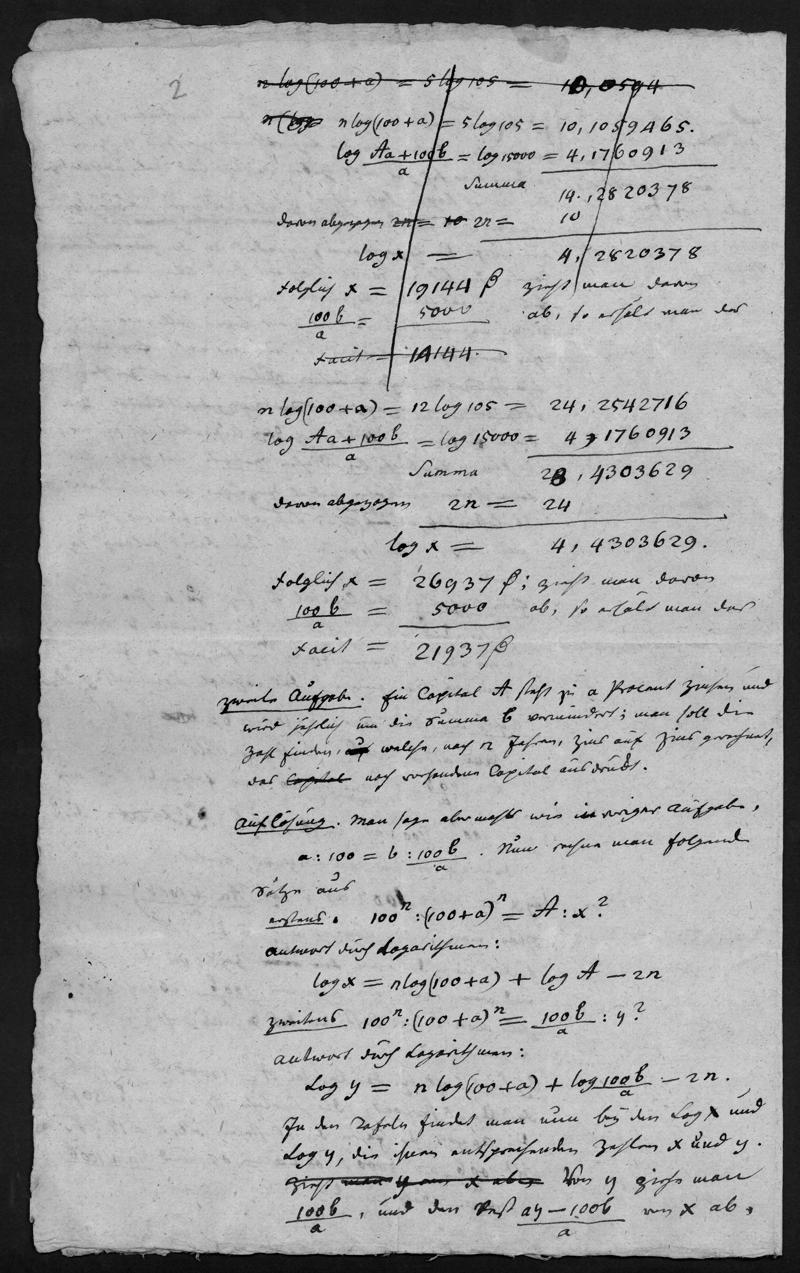 2
n log(100+a) = 5 log 105 = 10,0594
n log(100+a) = 5 log 105 = 10,1059465.
log (Aa+100b)/a = log 15000 = 4,1760913
Summa 14,2820378
davon abgezogen 2n = 10 2n = 10
log x = 4,2820378
Folglich x = 19144 β zieht man davon
100b/a = 5000 ab, so erhält man das
Facit = 14144.
n log(100+a) = 12 log 105 = 24,2542716
log (Aa+100b)/a = log 15000 = 4,1760913
Summa 28,4303629
davon abgezogen 2n = 24
log x = 4,4303629.
Folglich x = 26937 β; zieht man davon
100b/a = 5000 ab, so erhält man das
Facit = 21937 β
Zweite Aufgabe. Ein Capital A steht zu a Procent Zinsen und
wird jährlich um die Summa b vermindert; man soll die
Zahl finden, welche, nach n Jahren, Zins auf Zins gerechnet,
das Capital noch vorhandene Capital ausdrückt.
Auflösung. Man sage abermahls wie in voriger Aufgabe,
a : 100 = b : 100b/a. Nun rechne man folgende
Sätze aus
erstens. 100^n : (100+a)^n = A : x?
Antwort durch Logarithmen:
log x = n log(100+a) + log A − 2n
zweitens 100^n : (100+a)^n = 100b/a : y?
Antwort durch Logarithmen:
Log y = n log(100+a) + log 100b/a − 2n.
In den Tafeln findet man nun bey den Log x und
Log y, die ihnen entsprechenden Zahlen x und y.
Zieht man y von x ab, Von y ziehe man
100b/a, und den Rest (ay − 100b)/a von x ab,